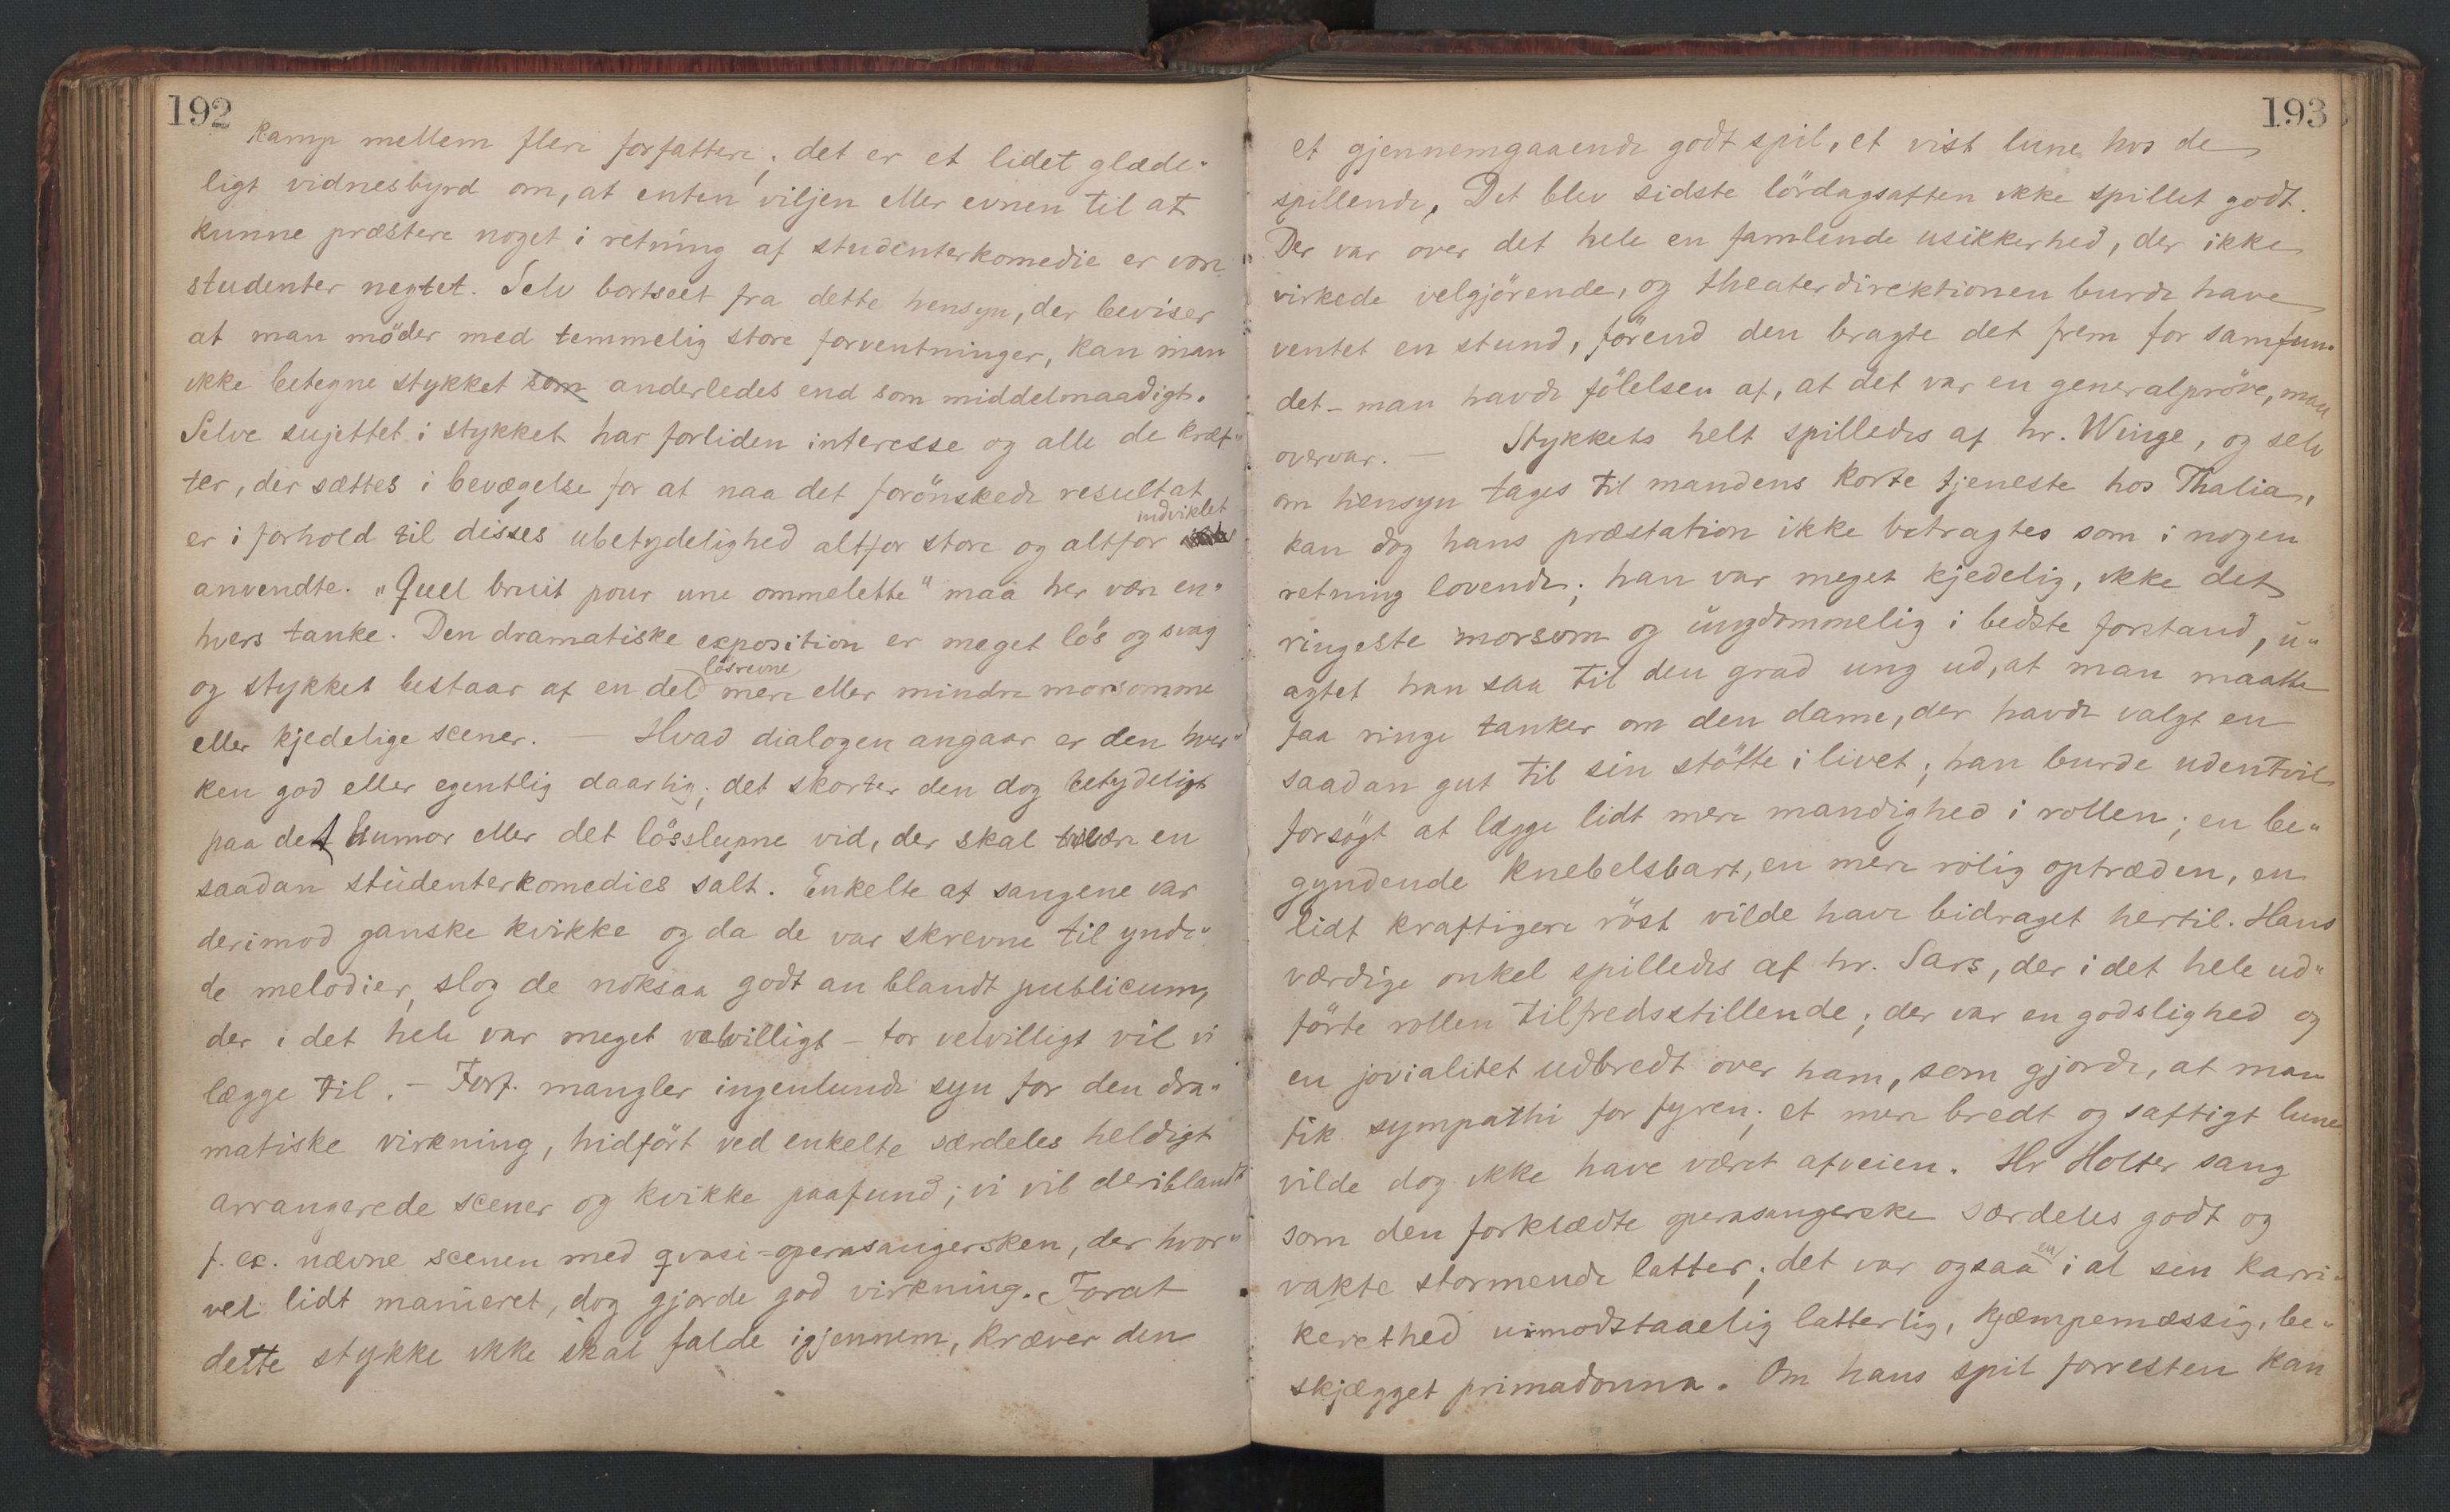 192
Kamp mellem flere forfattere; det er et lidet glæde-
ligt vidnesbyrd om, at enten viljen eller evnen til at
kunne præstere noget i retning af studenterkomedie er vore
studenter negtet. Selv bortseet fra dette hensyn, der beviser
at man möder med temmelig store forventninger, kan man
ikke betegne stykket som anderledes end som middelmaadigt.
Selve sujettet i stykket har forliden interesse og alle de kræf-
ter, der sættes i bevægelse for at naa det forönskede resultat
indviklet
er i forhold til disses ubetydelighed altfor store og altfor
anvendte. "Quel bruit pour une ommelette" maa her være en-
hvers tanke. Den dramatiske exposition er meget lös og svag
lösrevne
og stykket bestaar af en del mere eller mindre morsomme
eller kjedelige scener. — Hvad dialogen angaar er den hver-
ken god eller egentlig daarlig; det skorter den dog betydeligt
paa det humor eller det lösslupne vid, der skal være en
saadan studenterkomedies salt. Enkelte af sangene var
derimod ganske kvikke og da de var skrevne til ynde-
de melodier, slog de noksaa godt an blandt publicum,
der i det hele var meget velvilligt – for velvilligt vil vi
lægge til. – Forf. mangler ingenlunde syn for den dra-
matiske virkning, hidfört ved enkelte særdeles heldigt
arrangerede scener og kvikke paafund; vi vil deriblandt
f. ex. nævne scenen med qvasi-operasangersken, der hvor-
vel lidt manieret, dog gjorde god virkning. Forat
dette stykke ikke skal falde igjennem, kræver den
193
et gjennemgaaende godt spil, et vist lune hos de
spillende. Det blev sidste lördagsaften ikke spillet godt.
Der var over det hele en famlende usikkerhed, der ikke
virkede velgjörende, og theaterdirektionen burde have
ventet en stund, förend den bragte det frem for samfun-
det – man havde fölelsen af, at det var en generalpröve, man
overvar. — Stykkets helt spilledes af hr. Winge, og selv
om hensyn tages til mandens korte tjeneste hos Thalia,
kan dog hans præstation ikke betragtes som i nogen
retning lovende; han var meget kjedelig, ikke det
ringeste morsom og ungdommelig i bedste forstand, u-
agtet han saa til den grad ung ud, at man maatte
faa ringe tanker om den dame, der havde valgt en
saadan gut til sin stötte i livet; han burde udentvil
forsögt at lægge lidt mere mandighed i rollen; en be-
gyndende Knebelsbart, en mere rolig optræden, en
lidt kraftigere röst vilde have bidraget hertil. Hans
værdige onkel spilledes af hr. Sars, der i det hele ud-
förte rollen tilfredsstillende; der var en godslighed og
en jovialitet udbredt over ham, som gjorde, at man
fik sympathi for fyren; et mere bredt og saftigt lune
vilde dog ikke have været afveien. Hr Holter sang
som den forklædte operasangerske særdeles godt og
vakte stormende latter; det var ogsaa en i al sin karri-
kerethed uimodstaaelig latterlig, kjæmpemæssig, be-
skjægget primadonna. Om hans spil forresten kan